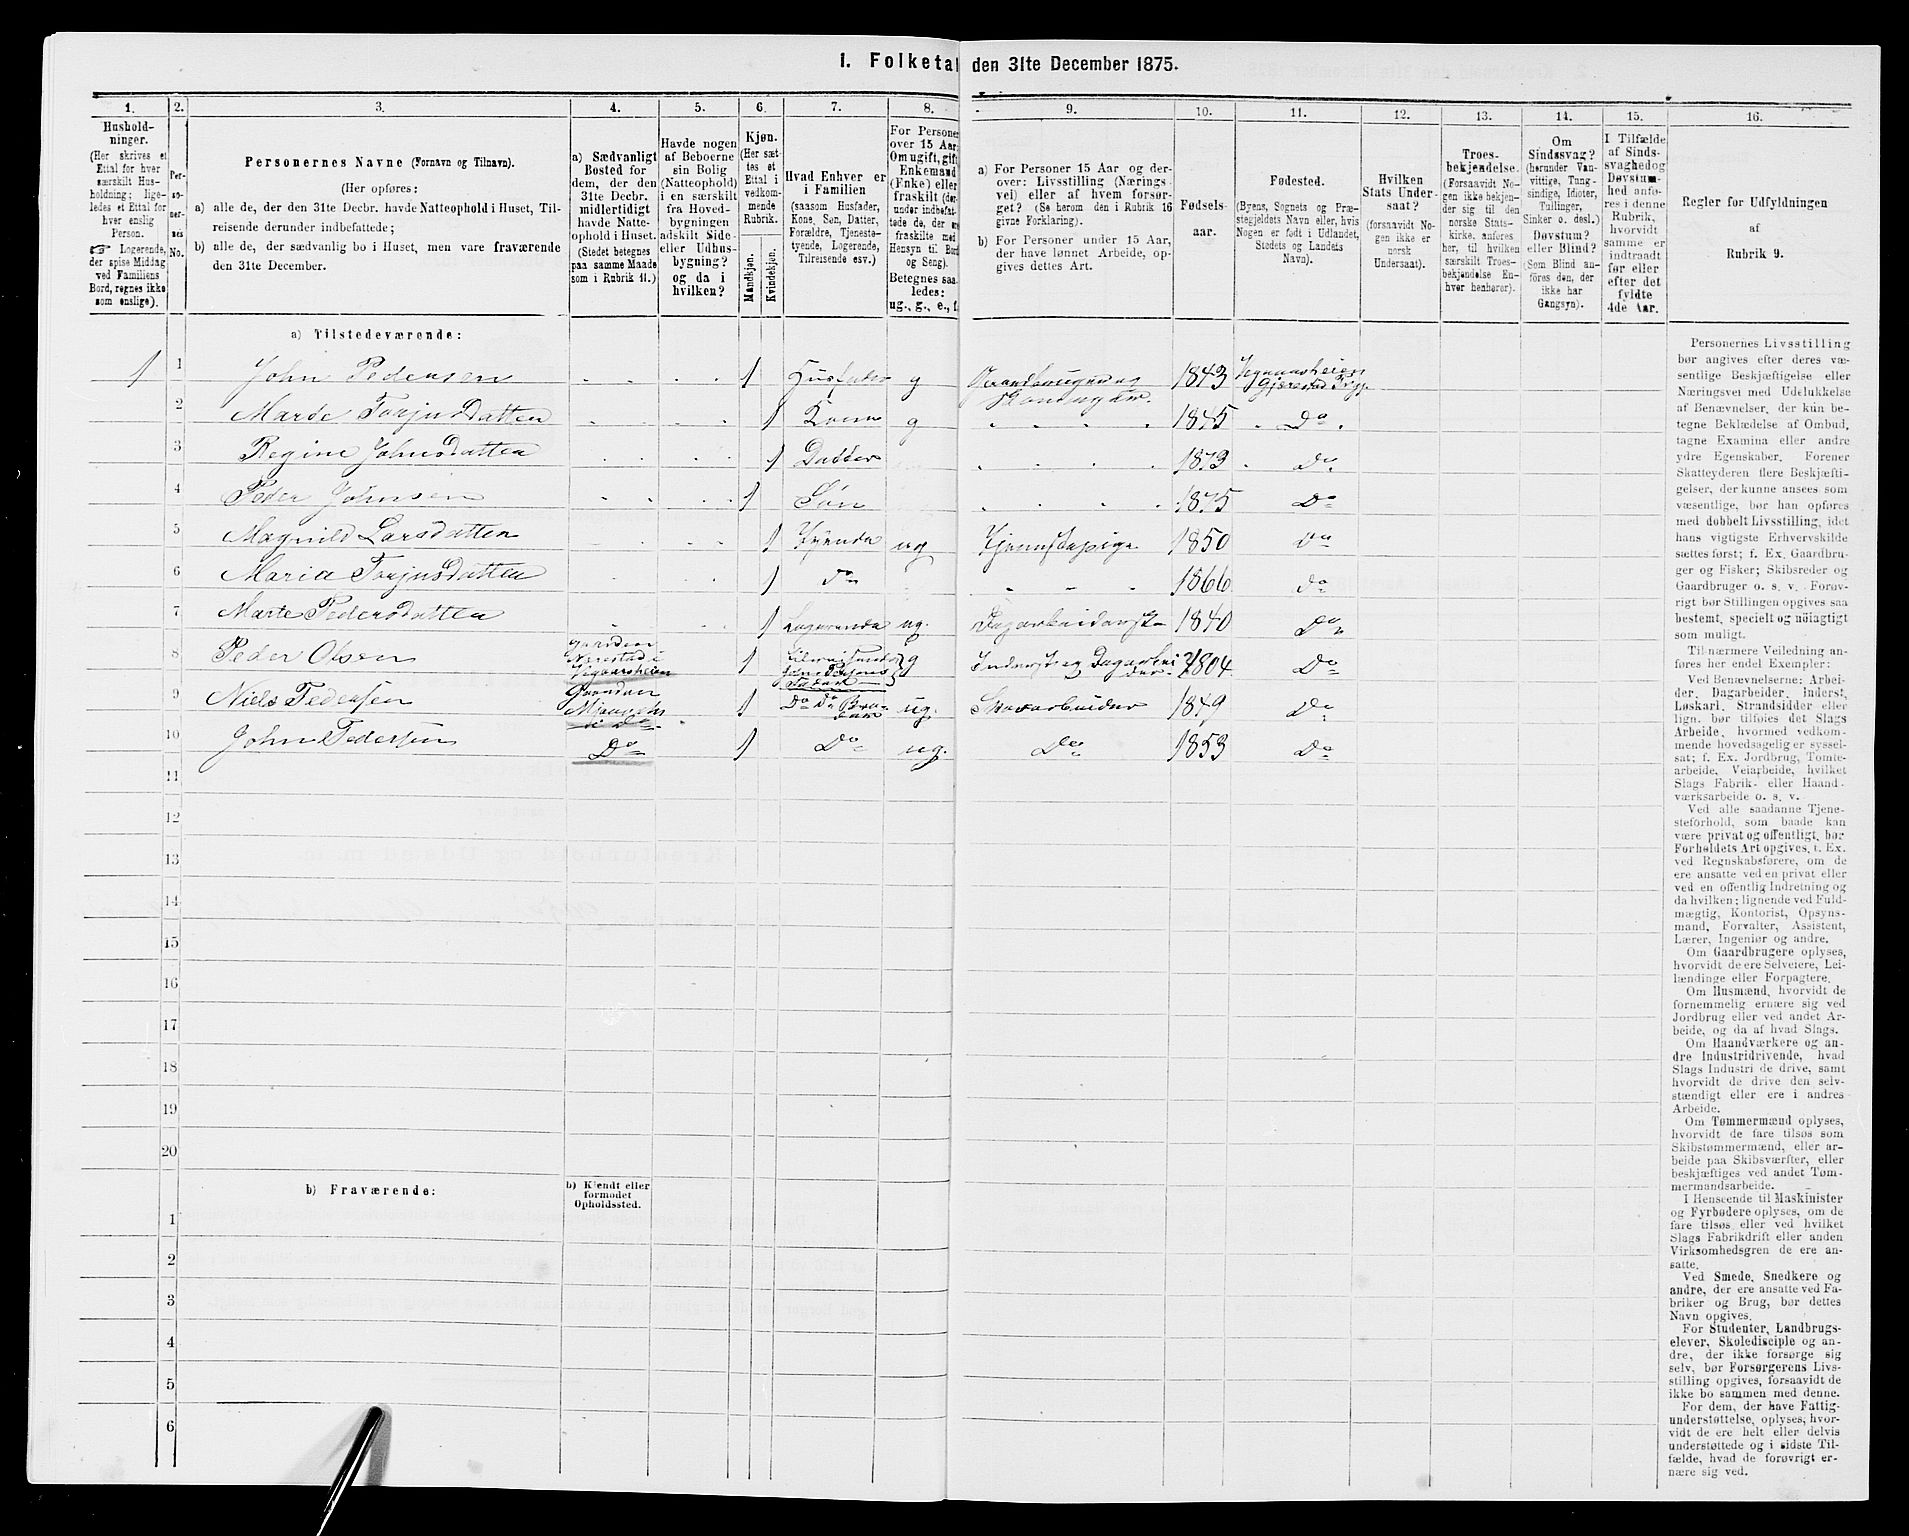 1. Folketal den 31te December 1875.
1.
2.
3.
4.
5.
6.
7.
8.
9.
10.
11.
12.
13.
14.
15.
16.
Hushold-
ninger.
(Her skrives et
Ettal for hver
særskilt Hus-
holdning; lige-
ledes et Ettal for
hver enslig
Person.
☞ Logerende,
der spise Middag
ved Familiens
Bord, regnes ikke
som enslige).
Per-
so-
ner-
nes
No.
Personernes Navne (Fornavn og Tilnavn).
(Her opføres:
a) alle de, der den 31te Decbr. havde Natteophold i Huset, Til-
reisende derunder indbefattede;
b) alle de, der sædvanlig bo i Huset, men vare fraværende
den 31te December.
a) Sædvanligt
Bosted for
dem, der den
31te Decbr.
midlertidigt
havde Natte-
ophold i Huset.
(Stedet betegnes
paa samme Maade
som i Rubrik 11.)
Havde nogen
af Beboerne
sin Bolig
(Natteophold)
i en særskilt
fra Hoved-
bygningen
adskilt Side-
eller Udhus-
bygning?
og da i
hvilken?
Kjøn.
(Her sæt-
tes et
Ettal i
vedkom-
mende
Rubrik.
Mandkjøn.
Kvindekjøn.
Hvad Enhver er
i Familien
(saasom Husfader,
Kone, Søn, Datter,
Forældre, Tjeneste-
tyende, Logerende,
Tilreisende osv.)
For Personer
over 15 Aar:
Om ugift, gift,
Enkemand
(Enke) eller
fraskilt (der-
under indbefat-
tede de, der ere
fraskilte med
Hensyn til Bord
og Seng).
Betegnes saa-
ledes:
ug., g., e., f.
a) For Personer 15 Aar og der-
over: Livsstilling (Nærings-
vei) eller af hvem forsør-
get? (Se herom den i Rubrik 16
givne Forklaring).
b) For Personer under 15 Aar,
der have lønnet Arbeide, op-
gives dettes Art.
Fødsels-
aar.
Fødested.
(Byens, Sognets og Præ-
stegjeldets Navn eller, hvis
Nogen er født i Udlandet,
Stedets og Landets
Navn).
Hvilken
Stats Under-
saat?
(forsaavidt No-
gen ikke er
norsk
Undersaat).
Troes-
bekjendelse.
(Forsaavidt No-
gen ikke bekjen-
der sig til den
norske Stats-
kirke, anføres
her, til hvilken
særskilt Troes-
bekjendelse En-
hver henhører).
Om
Sindssvag?
(herunder Van-
vittige, Tung-
sindige, Idioter,
Tullinger,
Sinker o. desl.)
Døvstum?
eller Blind?
(Som Blind an-
føres den, der
ikke har
Gangsyn).
I Tilfælde
af Sinds-
svaghed og
Døvstum-
hed anfø-
res i denne
Rubrik,
hvorvidt
samme er
indtraadt
før eller
efter det
fyldte
4de Aar.
Regler for Udfyldningen
af
Rubrik 9.
a) Tilstedeværende:
1 1 John Pedersen 1 Husfader g Gaardbruger og 1843 Vegaarsheien
Gjerestad
2 Marte Torjusdatten 1 Kone g 1845 Do
3 Regine Johnsdatten 1 Datter 1873 Do
4 Peder Johnsen 1 Søn 1875 Do
5 Magnild Larsdatten 1 ug Tjenestepige 1850 Do
6 Maria Torjusdatten 1 Do 1866 Do
7 Marte Pedersdatten 1 Logerende ug. 1840 Do
8 Peder Olsen Gaarden
i
Vegaarsheien 1 g Inderst og Dagarbei
der 1804 Do
9 Niels Pedersen Gaarden
i Do 1 Do Do Bro-
der ug. Skovarbeider 1849 Do
10 John Pedersen Do 1 Do ug. Do 1853 Do
11
12
13
14
15
16
17
18
19
20
b) Fraværende:
b) Kjendt eller
formodet
Opholdssted.
1
2
3
4
5
6
Personernes Livsstilling
bør angives efter deres væ-
sentlige Beskjæftigelse eller
Næringsvei med Udelukkelse
af Benævnelser, der kun be-
tegne Beklædelse af Ombud,
tagne Examina eller andre
ydre Egenskaber. Forener
Skatteyderen flere Beskjæfti-
gelser, der kunne ansees som
væsentlige, bør han opføres
med dobbelt Livsstilling, idet
hans vigtigste Erhvervskilde
sættes først; f. Ex. Gaardbru-
ger og Fisker; Skibsreder og
Gaardbruger o. s. v. Forøv-
rigt bør Stillingen opgives saa
bestemt, specielt og nøiagtigt
som muligt.
Til nærmere Veiledning an-
føres her endel Exempler:
Ved Benævnelserne: Arbei-
der, Dagarbeider, Inderst,
Løskarl, Strandsidder eller
lign. bør tilføies det Slags
Arbeide, hvormed vedkom-
mende hovedsagelig er syssel-
sat; f. Ex. Jordbrug, Tomte-
arbeide, Veiarbeide, hvilket
Slags Fabrik- eller Haand-
værksarbeide o. s. v.
Ved alle saadanne Tjene-
steforhold, som baade kan
være privat og offentligt, bør
Forholdets Art opgives, t. Ex.
ved Regnskabsførere, om de
ere ansatte ved en privat eller
ved en offentlig Indretning og
da hvilken; lignende ved Fuld-
mægtig, Kontorist, Opsyns-
mand, Forvalter, Assistent,
Lærer, Ingeniør og andre.
Om Gaardbrugere oplyses,
hvorvidt de ere Selveiere, Lei-
lændinge eller Forpagtere.
Om Husmænd, hvorvidt de
fornemmelig ernære sig ved
Jordbrug eller ved andet Ar-
beide, og da af hvad Slags.
Om Haandværkere og an-
dre Industridrivende, hvad
Slags Industri de drive, samt
hvorvidt de drive den selv-
stændigt eller ere i andres
Arbeide.
Om Tømmermænd oplyses,
hvorvidt de fare tilsøs som
Skibstømmermænd, eller ar-
beide paa Skibsværfter, eller
beskjæftiges ved andet Tøm-
mermandsarbeide.
I Henseende til Maskinister
og Fyrbødere oplyses, om de
fare tilsøs eller ved hvilket
Slags Fabrikdrift eller anden
Virksomhedsgren de ere an-
satte.
Ved Smede, Snedkere og
andre, der ere ansatte ved Fa-
briker og Brug, bør dettes
Navn opgives.
For Studenter, Landbrugs-
elever, Skoledisciple og an-
dre, der ikke forsørge sig
selv, bør Forsørgerens Livs-
stilling opgives, forsaavidt de
ikke bo sammen med denne.
For dem, der have Fattig-
understøttelse, oplyses, hvor-
vidt de ere helt eller delvis
understøttede og i sidste Til-
fælde, hvad de forøvrigt er-
nære sig ved.